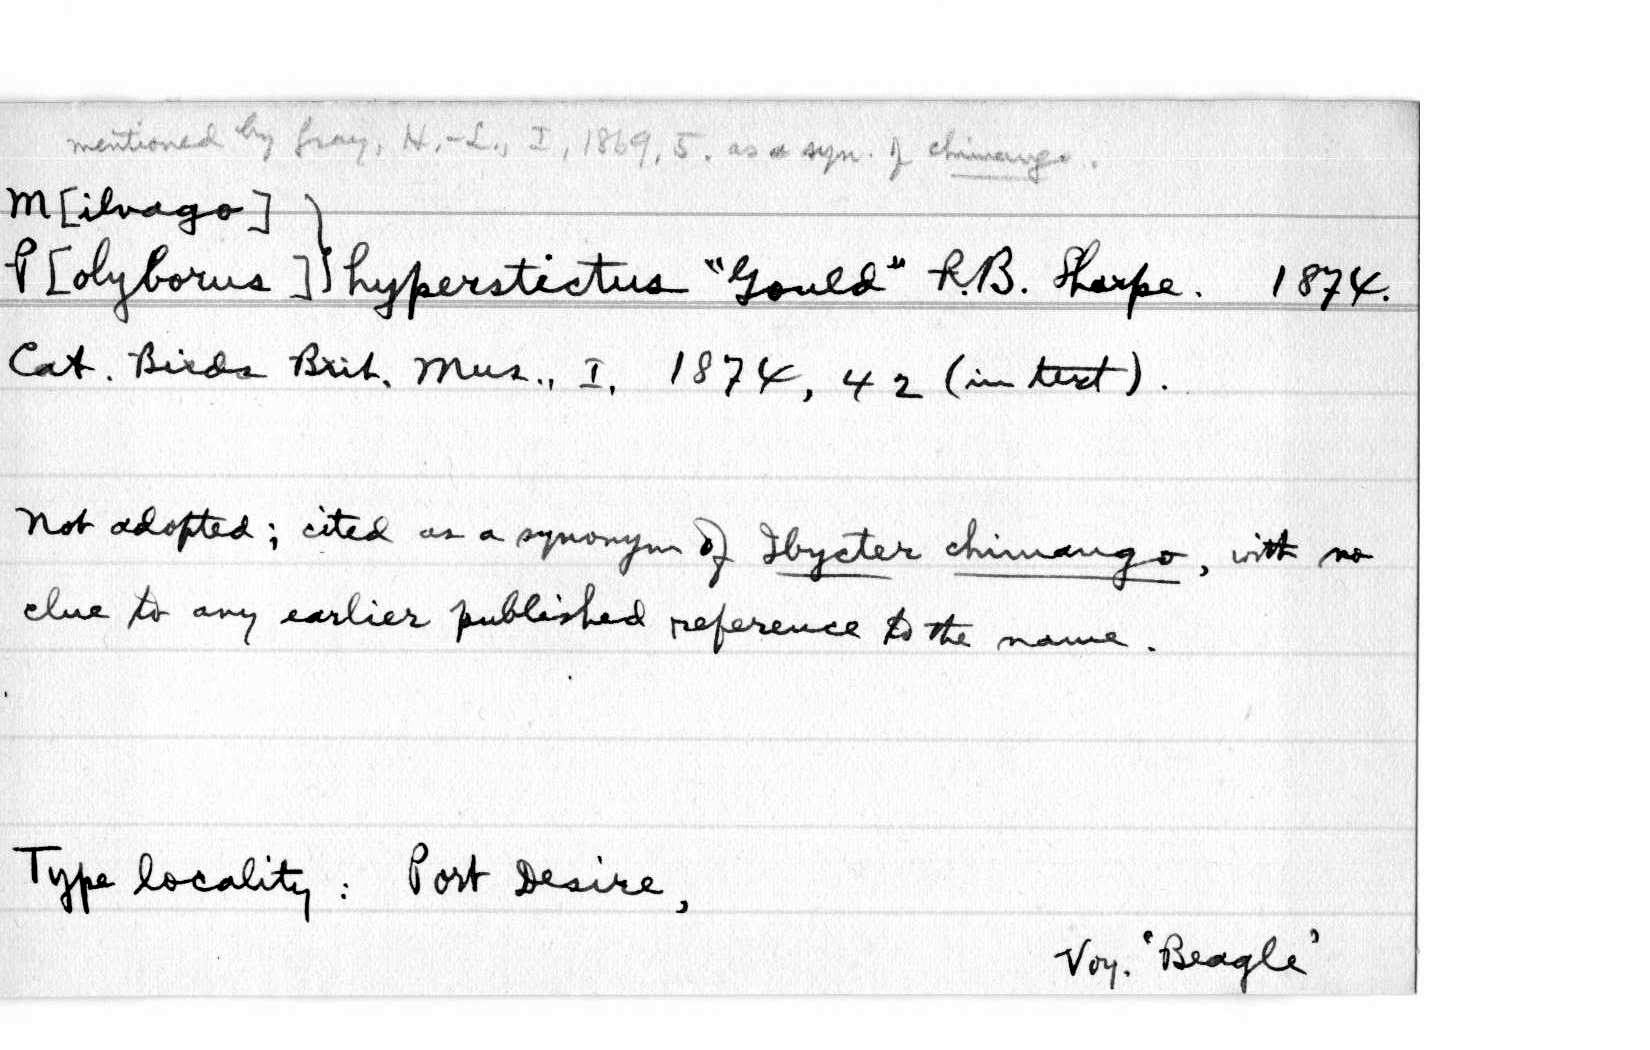 mentioned by Gray, H.-L., I, 1869, 5. as a syn. of chimango.
M[ilvago]
P[olyborus]} hyperstictus "Gould" R.B. Sharpe. 1874.
Cat. Birds Brit. Mus., I, 1874, 42 (in text).
Not adopted; cited as a synonym of Ibycter chimango, with no
clue to any earlier published reference to the name.
Type locality: Port Desire,
Voy. 'Beagle'